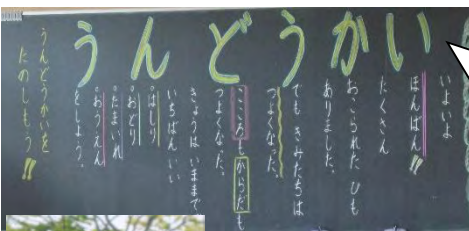 うんどうかい
いよいよ
ほんばん!!
たくさん
おこられた ひも
ありました。
でも きみたちは
つよくなった。
こころも からだも
つよくなった。
きょうは いままで
いちばん いい
・はしり
・おどり
・たまいれ
・おうえん
をしよう。
うんどうかいを
たのしもう!!